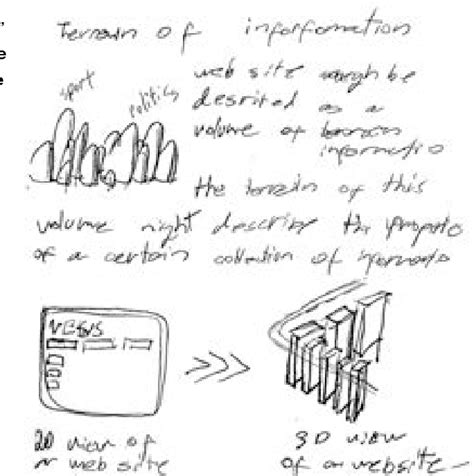 Terrain of inforfomation
"
e
e
sport
politics
web site might be
desribed as a
volume of
informatio
the terrain of this
volume might describe the
of a certain collection of
NEWS
2D view of
a web site
3D view
of a website